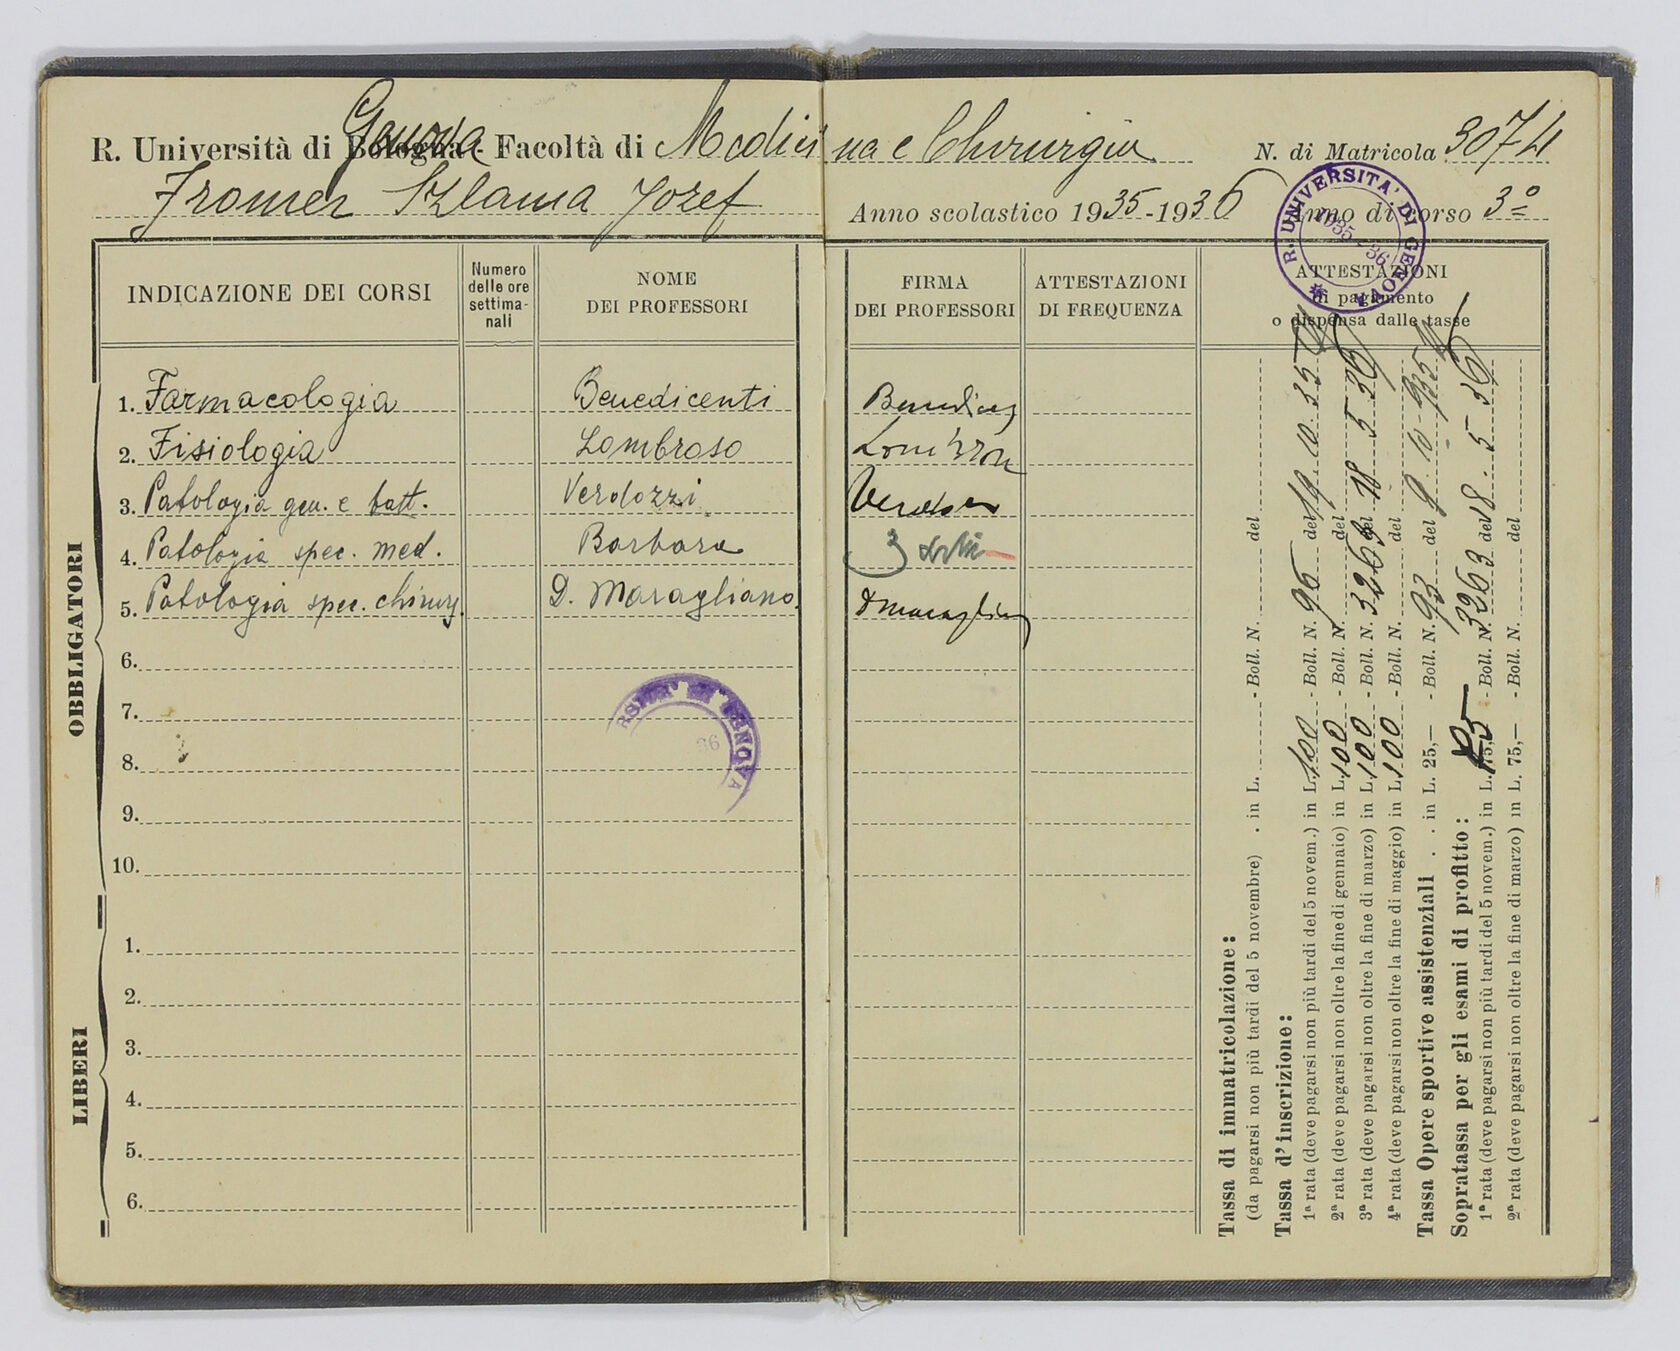 R. Università di Bologna - Facoltà di Medicina e Chirurgia N. di Matricola 3074
Genova
Fromer Szlama Jozef Anno scolastico 1935-1936 Anno di corso 3º
R. UNIVERSITA' DI GENOVA
1935-36
INDICAZIONE DEI CORSI
Numero
delle ore
settima-
nali
NOME
DEI PROFESSORI
FIRMA
DEI PROFESSORI
ATTESTAZIONI
DI FREQUENZA
ATTESTAZIONI
di pagamento
o dispensa dalle tasse
OBBLIGATORI
1. Farmacologia Benedicenti
2. Fisiologia Lombroso Lombroso
3. Patologia gen. e batt. Verdozzi
4. Patologia spec. med. Barbara
5. Patologia spec. chirurg. D. Maragliano D Maragliano
6.
7.
8.
9.
10.
RSITA' DI GENOVA
36
LIBERI
1.
2.
3.
4.
5.
6.
Tassa di immatricolazione:
(da pagarsi non più tardi del 5 novembre) . in L. - Boll. N. del
Tassa d'inscrizione:
1ª rata (deve pagarsi non più tardi del 5 novem.) in L. 100 - Boll. N. 96 del 19 10 35
2ª rata (deve pagarsi non oltre la fine di gennaio) in L. 100 - Boll. N. del
3ª rata (deve pagarsi non oltre la fine di marzo) in L. 100 - Boll. N. 3263 del 18 5 36
4ª rata (deve pagarsi non oltre la fine di maggio) in L. 100 - Boll. N. del
Tassa Opere sportive assistenziali . . in L. 25,— - Boll. N. 93 del 9 10 935
Sopratassa per gli esami di profitto:
1ª rata (deve pagarsi non più tardi del 5 novem.) in L. 75,— - Boll. N. 3263 del 18 . 5 36
2ª rata (deve pagarsi non oltre la fine di marzo) in L. 75,— - Boll. N. del